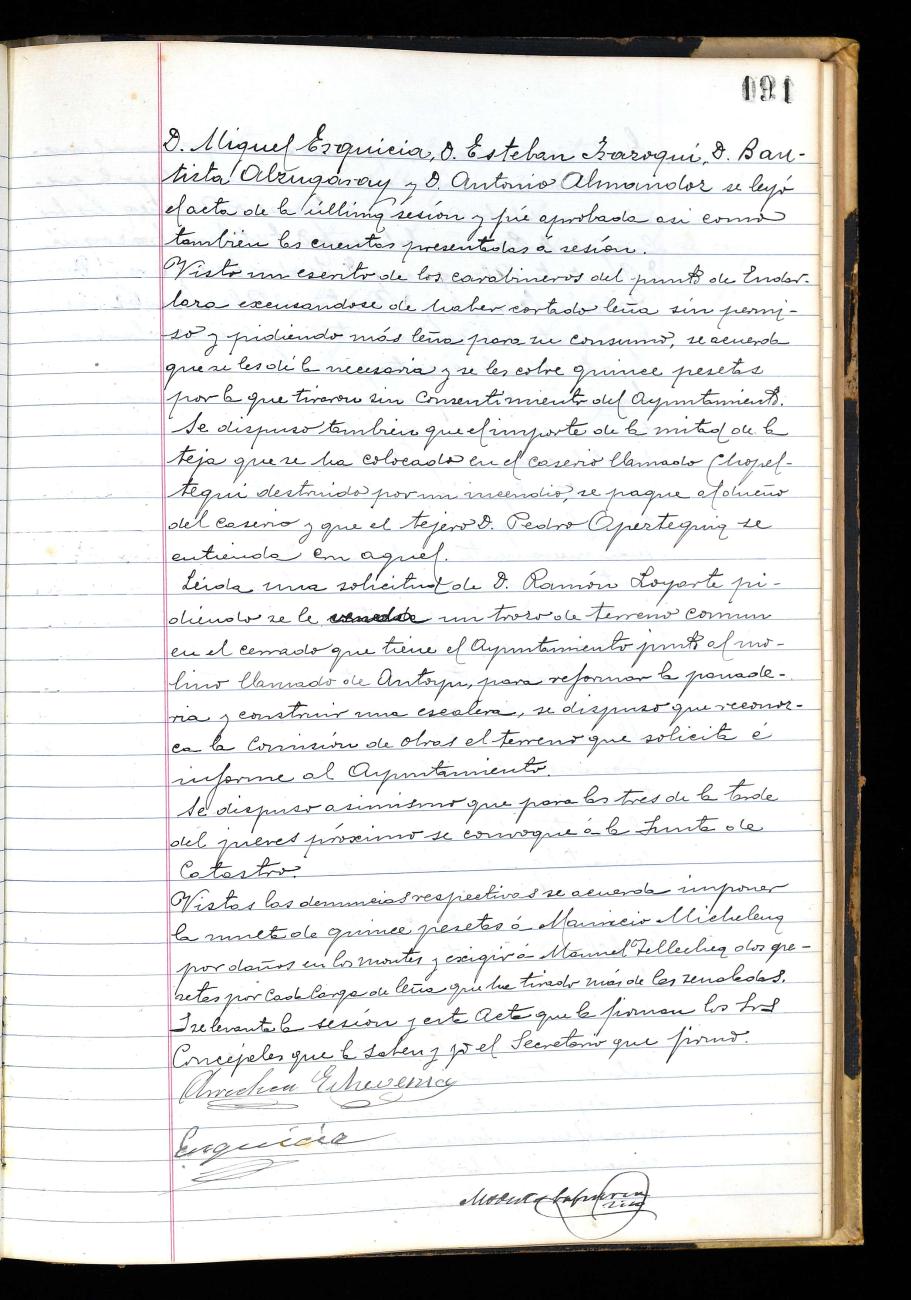 191
D. Miguel Ezquicia, D. Esteban Irazoqui, D. Bau-
tista Alzugaray y D. Antonio Almandoz se leyó
el acta de la última sesión y fué aprobada asi como
también las cuentas presentadas á sesión.
Visto un escrito de los carabineros del punto de Endar-
laza excusandose de haber cortado leña sin permi-
so y pidiendo más leña para su consumo, se acuerda
que se les dé la necesaria y se les cobre quince pesetas
por la que tiraron sin consentimiento del Ayuntamiento.
Se dispuso también que el importe de la mitad de la
teja que se ha colocado en el caserio llamado Chopel-
tegui destruido por un incendio, se pague al dueño
del caserio y que el tejero D. Pedro Apertegui se
entienda con aquel.
Leida una solicitud de D. Ramón Loyarte pi-
diendo se le un trozo de terreno comun
en el cerrado que tiene el Ayuntamiento junto al mo-
lino llamado de Antoyn, para reformar la panade-
ria y construir una escalera, se dispuso que reconoz-
ca la Comisión de obras el terreno que solicita é
informe al Ayuntamiento.
Se dispuso asimismo que para las tres de la tarde
del jueves próximo se convoque á la Junta de
Catastro.
Vistas las denuncias respectivas se acuerda imponer
la multa de quince pesetas á Mauricio Michelena
por daños en los montes y exigir á Manuel Tellechea dos pe-
setas por cada carga de leña que ha tirado más de las señaladas.
I se levanta la sesión y esta Acta que la firman los Srs
Concejales que la saben y yo el Secretario que firmo.
Arrechea Echeverria
Ezquicia